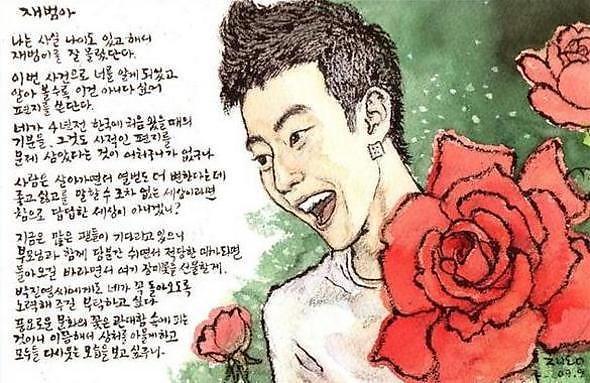 재범아
나는 사실 나이도 있고 해서
재범이를 잘 몰랐단다.
이번 사건으로 너를 알게 되었고
알아 볼수록 이건 아니다 싶어
편지를 쓴단다.
네가 4년전 한국에 처음 왔을 때의
기분을, 그것도 사적인 편지를
문제 삼았다는 것이 어처구니가 없구나
사람은 살아가면서 열번도 더 변한다는데
좋고 싫고를 말할 수 조차 없는 세상이라면
참으로 답답한 세상이 아니겠니?
지금은 많은 팬들이 기다리고 있으니
부모님과 함께 당분간 쉬면서 적당한 때가 되면
돌아오길 바라면서 여기 장미꽃을 선물할게.
박진영씨에게도 네가 꼭 돌아오도록
노력해 주길 부탁하고 싶다
풍요로운 문화의 꽃은 관대함 속에 피는
것이니 이쯤해서 상처를 아물게하고
모두들 다시웃는 모습을 보고 싶구나.
09.9